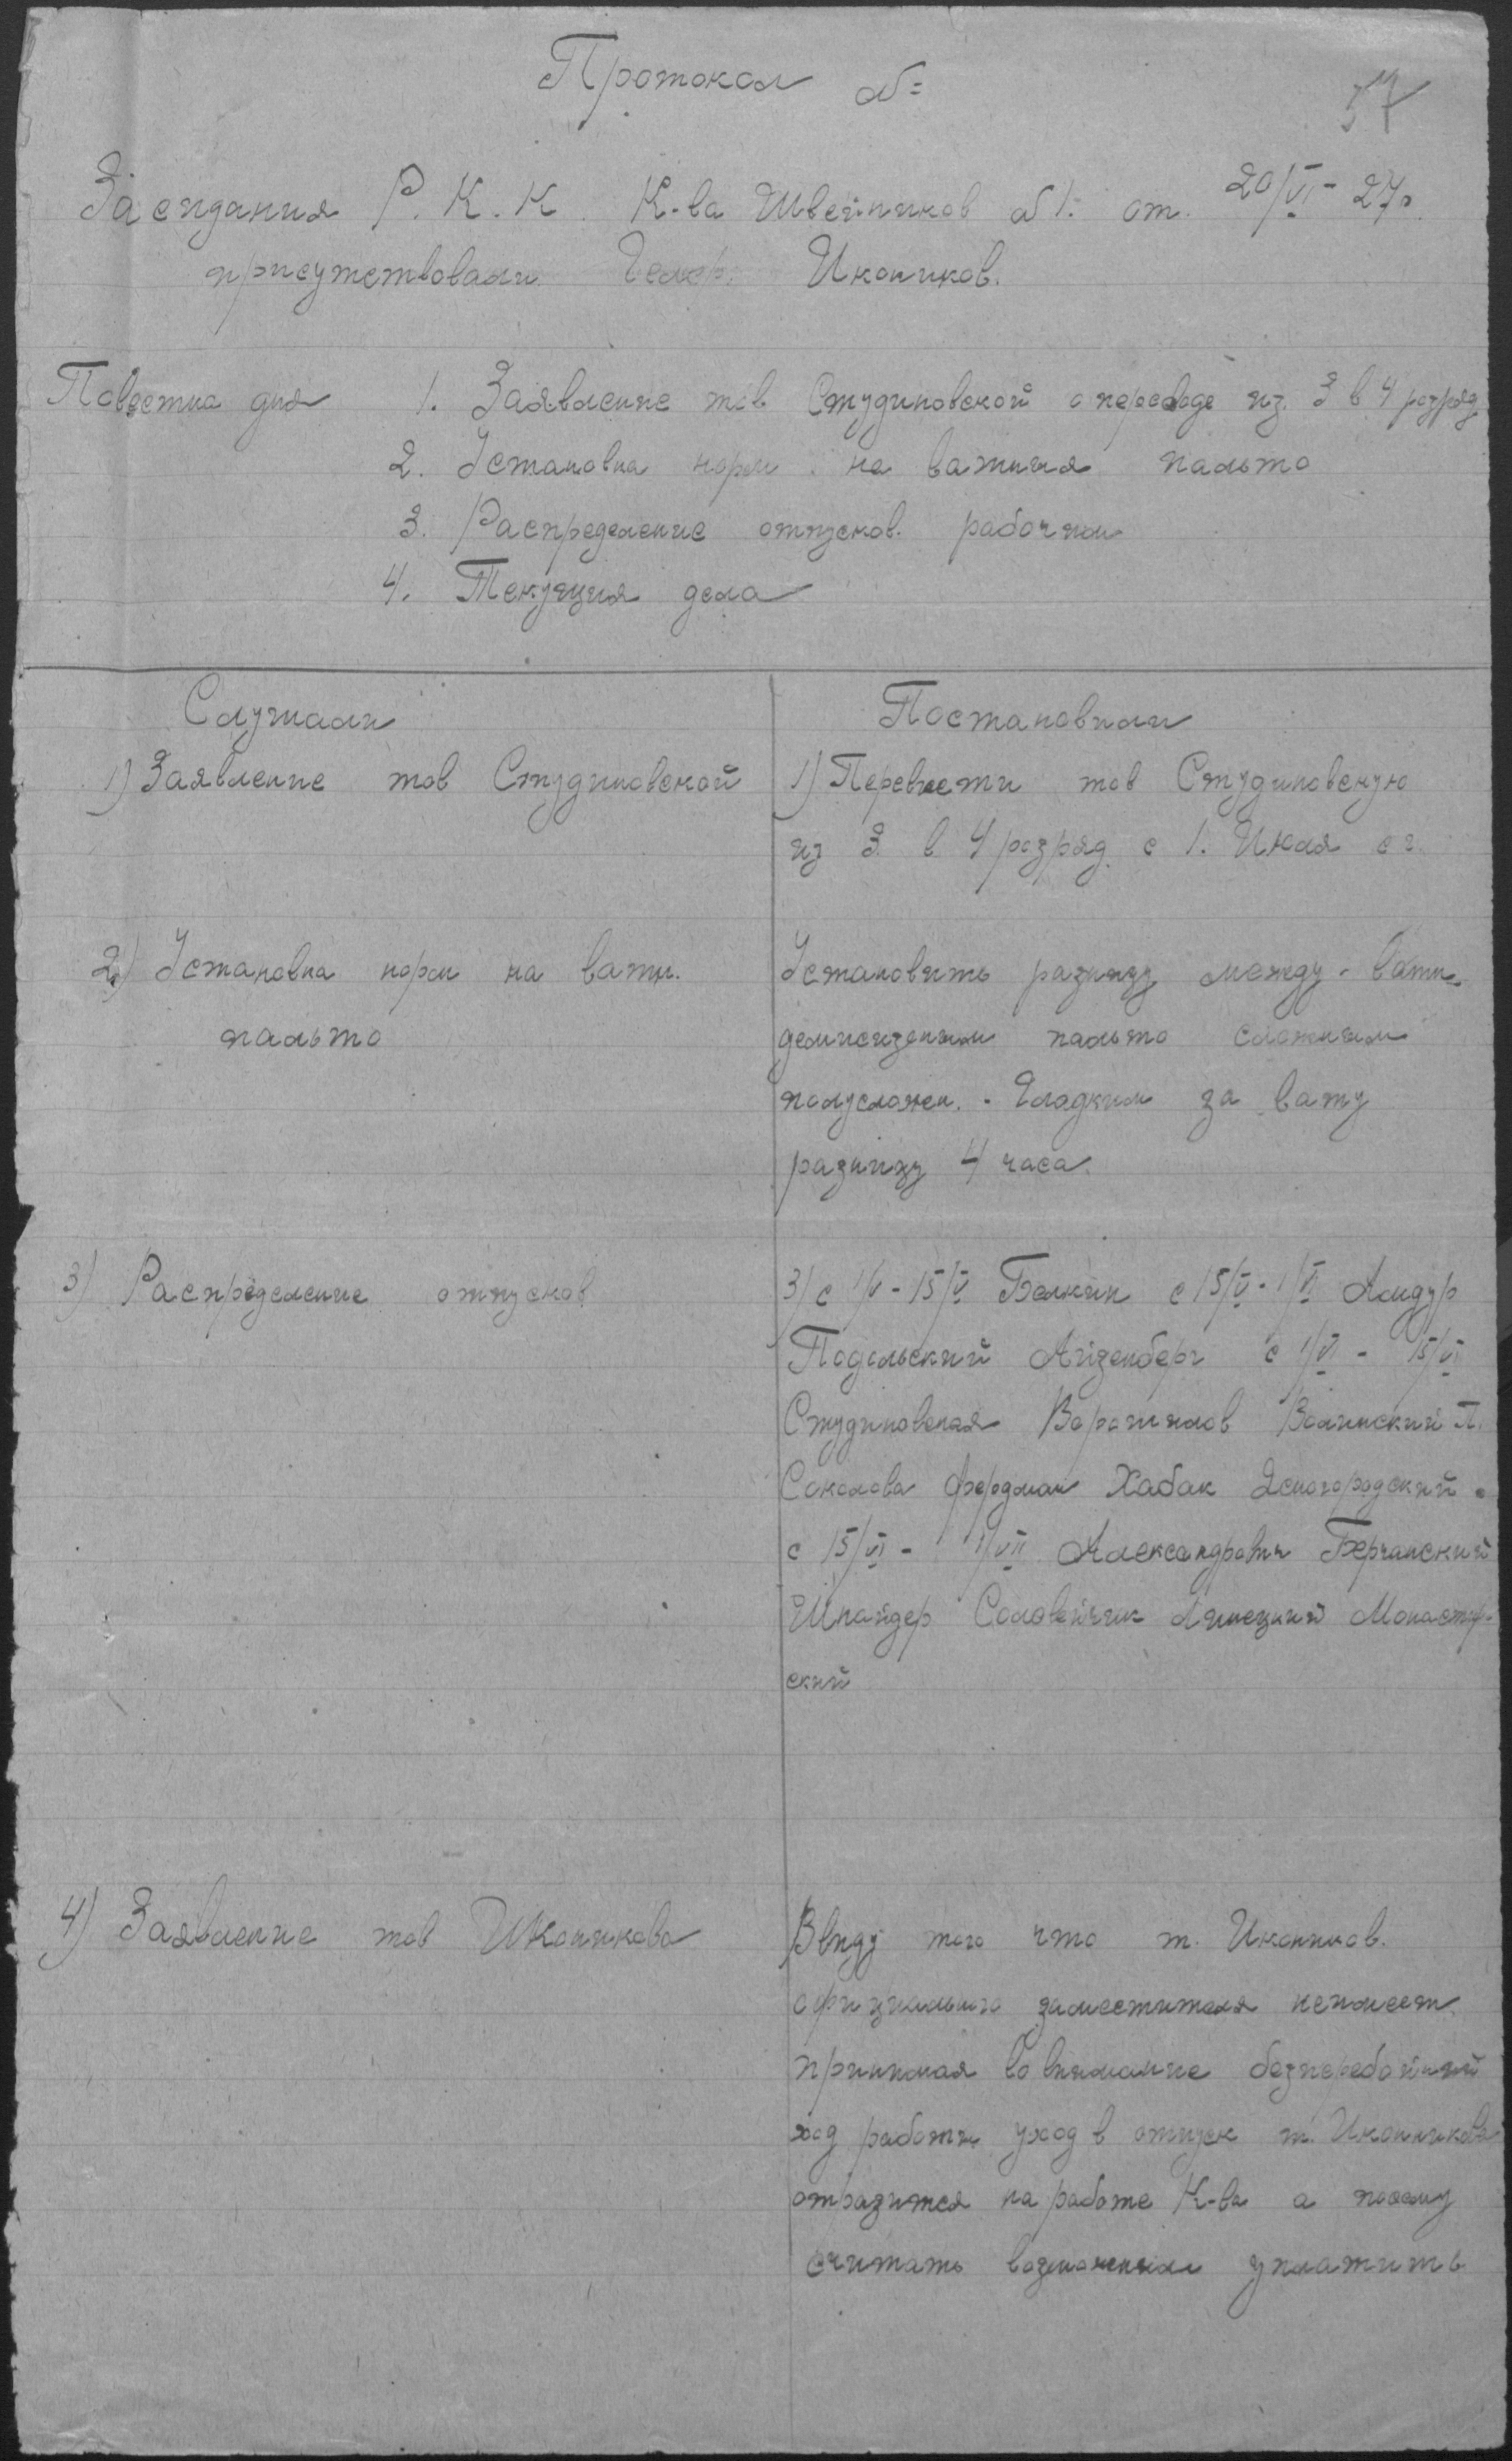 Протокол №=
57
Заседания Р.К.К. К-ва Швейников №1. от 20/VI-27г.
присутствовали Иконников.
Повестка дня 1. Заявление тов Студиновской о переводе из 3 в 4 разряд
2. Установка норм на ватныя пальто
3. Распределение отпусков. рабочим
4. Текущия дела
Слушали
1) Заявление тов Студиновской
2) Установка норм на ватн.
пальто
3) Распределение отпусков
4) Заявление тов Иконникова
Постановили
1) Перевести тов Студиновскую
из 3 в 4 разряд с 1. Июля с г.
Установить разницу между - ватн.
демисизоным пальто сложным
полусложн. - Гладким за вату
разницу 4 часа.
3) с 1/V - 15/V Белкин с 15/V - 1/VI Амдур
Подольский Айзенберг с 1/VI - 15/VI
Студиновская Воротилов Волинский П.
Соколова Фердман Хабак Ясногородский.
с 15/VI - 1/VII Александрович Берчанский
Шнайдер Соловейчик Липецкий Монастыр-
ский
Ввиду того что т. Иконников.
официального заместителя неимеет.
принимая во внимание безперебойный
ход работы, уход в отпуск т. Иконникова
отразится на работе К-ва а поэому
считать возможным уплатить